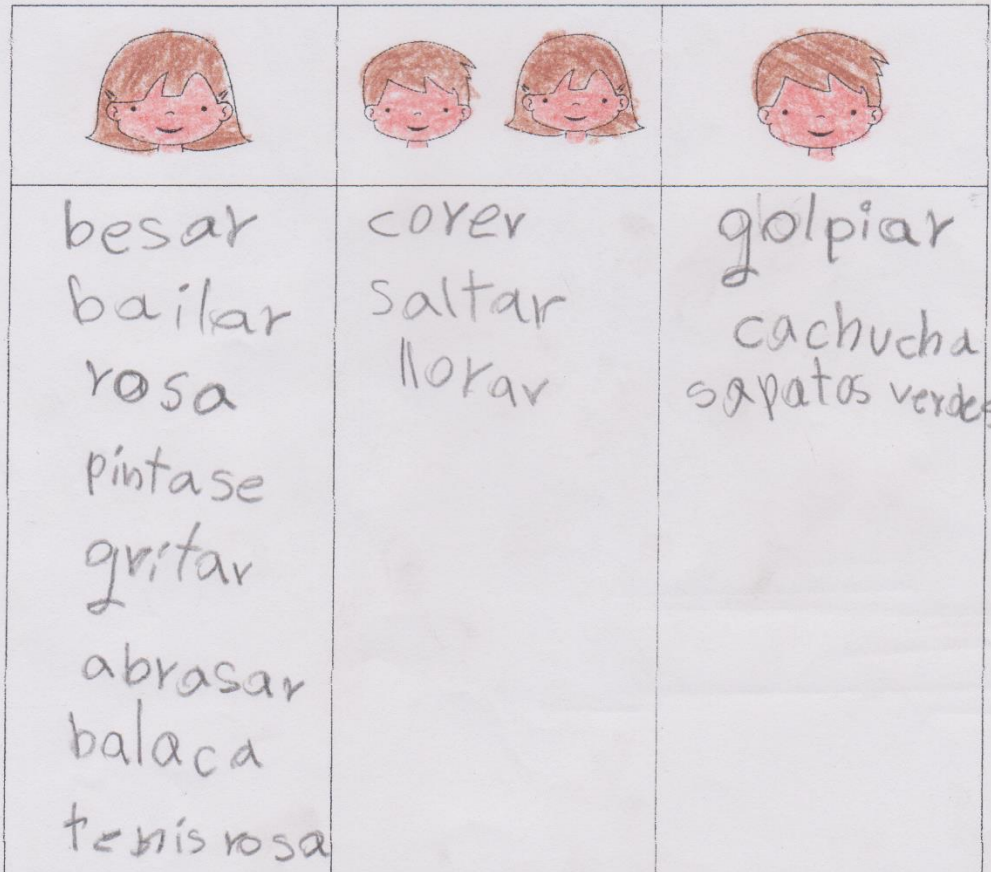 besar
bailar
rosa
pintase
gritar
abrasar
balaca
tenis rosa
corer
saltar
llorar
golpiar
cachucha
sapatos verdes